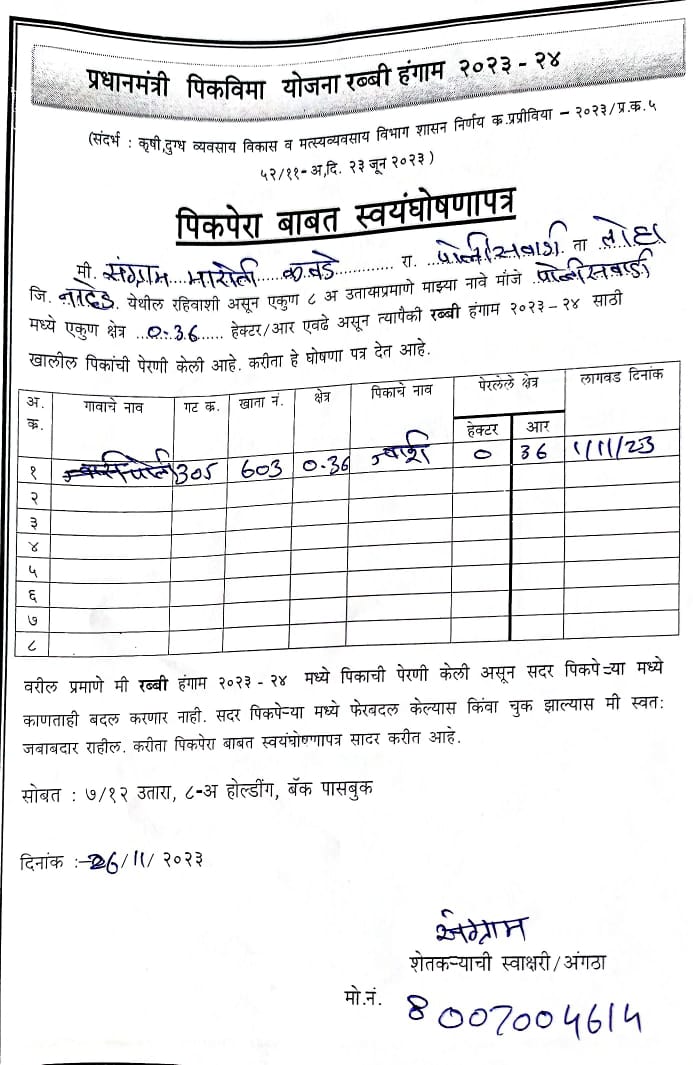 प्रधानमंत्री पिकविमा योजना रब्बी हंगाम २०२३ - २४
(संदर्भ : कृषी,दुग्ध व्यवसाय विकास व मत्स्यव्यवसाय विभाग शासन निर्णय क.प्रपीविया – २०२३/प्र.क.५
५२/११-अ,दि. २३ जून २०२३)
पिकपेरा बाबत स्वयंघोषणापत्र
मी. संग्राम मारोती कवडे रा. पोलीसवाडी ता लोहा
जि. नांदेड येथील रहिवाशी असून एकुण ८ अ उताऱ्याप्रमाणे माझ्या नावे मौजे पोलीसवाडी
मध्ये एकुण क्षेत्र ..0.36...... हेक्टर/आर एवढे असून त्यापैकी रब्बी हंगाम २०२३-२४ साठी
खालील पिकांची पेरणी केली आहे. करीता हे घोषणा पत्र देत आहे.
अ. क. गावाचे नाव गट क. खाता नं. क्षेत्र पिकाचे नाव पेरलेले क्षेत्र लागवड दिनांक
हेक्टर आर
१ 305 603 0.36 ज्वारी 0 36 1/11/23
२
३
४
५
६
७
८
वरील प्रमाणे मी रब्बी हंगाम २०२३ - २४ मध्ये पिकाची पेरणी केली असून सदर पिकपेऱ्या मध्ये
काणताही बदल करणार नाही. सदर पिकपेऱ्या मध्ये फेरबदल केल्यास किंवा चुक झाल्यास मी स्वत:
जबाबदार राहील. करीता पिकपेरा बाबत स्वयंघोष्णापत्र सादर करीत आहे.
सोबत : ७/१२ उतारा, ८-अ होल्डींग, बॅक पासबुक
दिनांक :-26/11/ २०२३
संग्राम
शेतकऱ्याची स्वाक्षरी/अंगठा
मो.नं. 8007004614